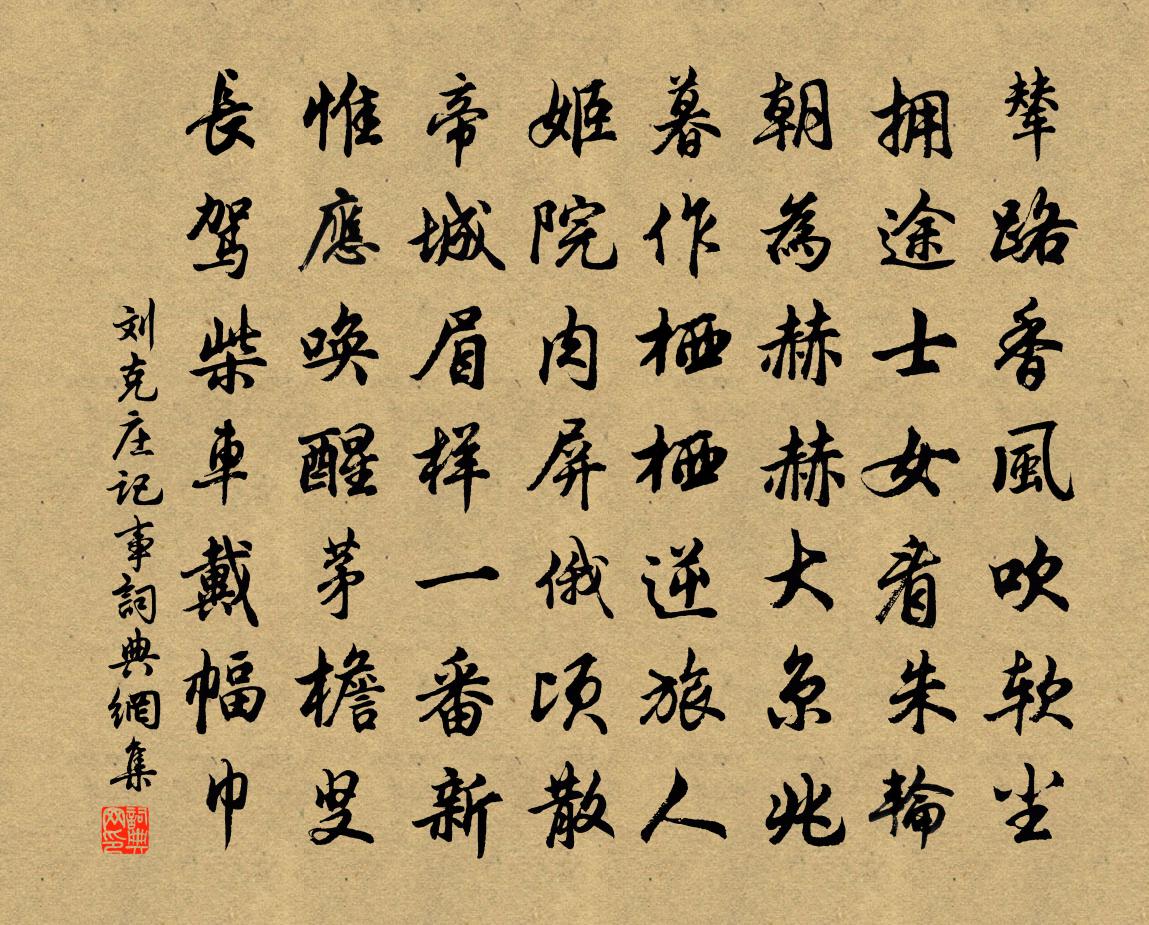 輦路香風吹軟塵
擁途士女看朱輪
朝為赫赫大京兆
暮作栖栖逆旅人
姬院肉屏俄頃散
帝城眉樣一番新
惟應喚醒茅檐叟
長駕柴車戴幅巾
刘克庄記事詞典網集
詞典網印